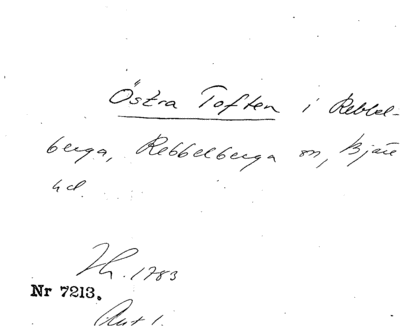 Östra Toften i Rebbel-
berga, Rebbelberga sn, Bjäre
hd
1783
Nr 7213.
Akt 1.